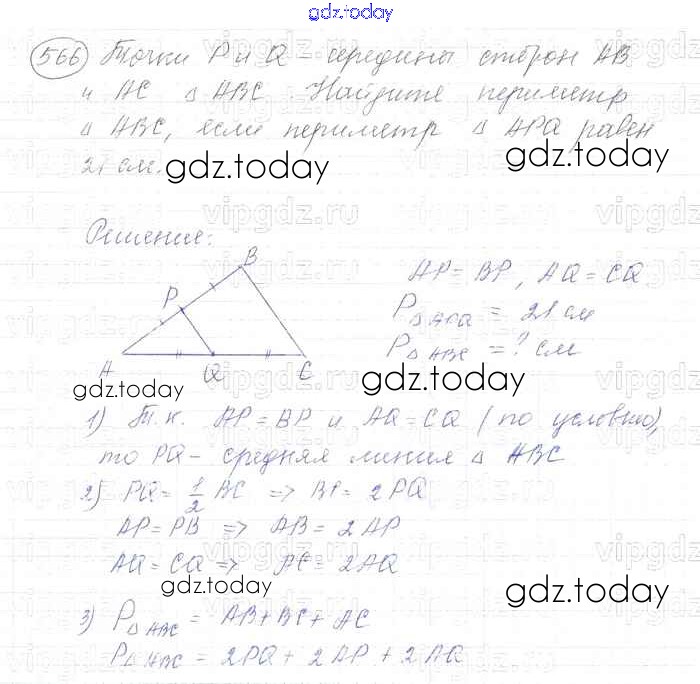 gdz.today
566 Точки P и Q – середины сторон AB
и AC △ ABC. Найдите периметр
△ ABC, если периметр △ APQ равен
21 см.
gdz.today
gdz.today
Решение:
B
P
A
Q
C
AP = BP, AQ = CQ
P△APQ = 21 см
P△ABC = ? см
gdz.today
gdz.today
1) Т.к. AP = BP и AQ = CQ (по условию),
то PQ – средняя линия △ ABC
2) PQ = 1/2 BC => BP = 2PQ
AP = PB => AB = 2AP
AQ = CQ => AC = 2AQ
gdz.today
gdz.today
3) P△ABC = AB + BC + AC
P△ABC = 2PQ + 2AP + 2AQ
vipgdz.ru